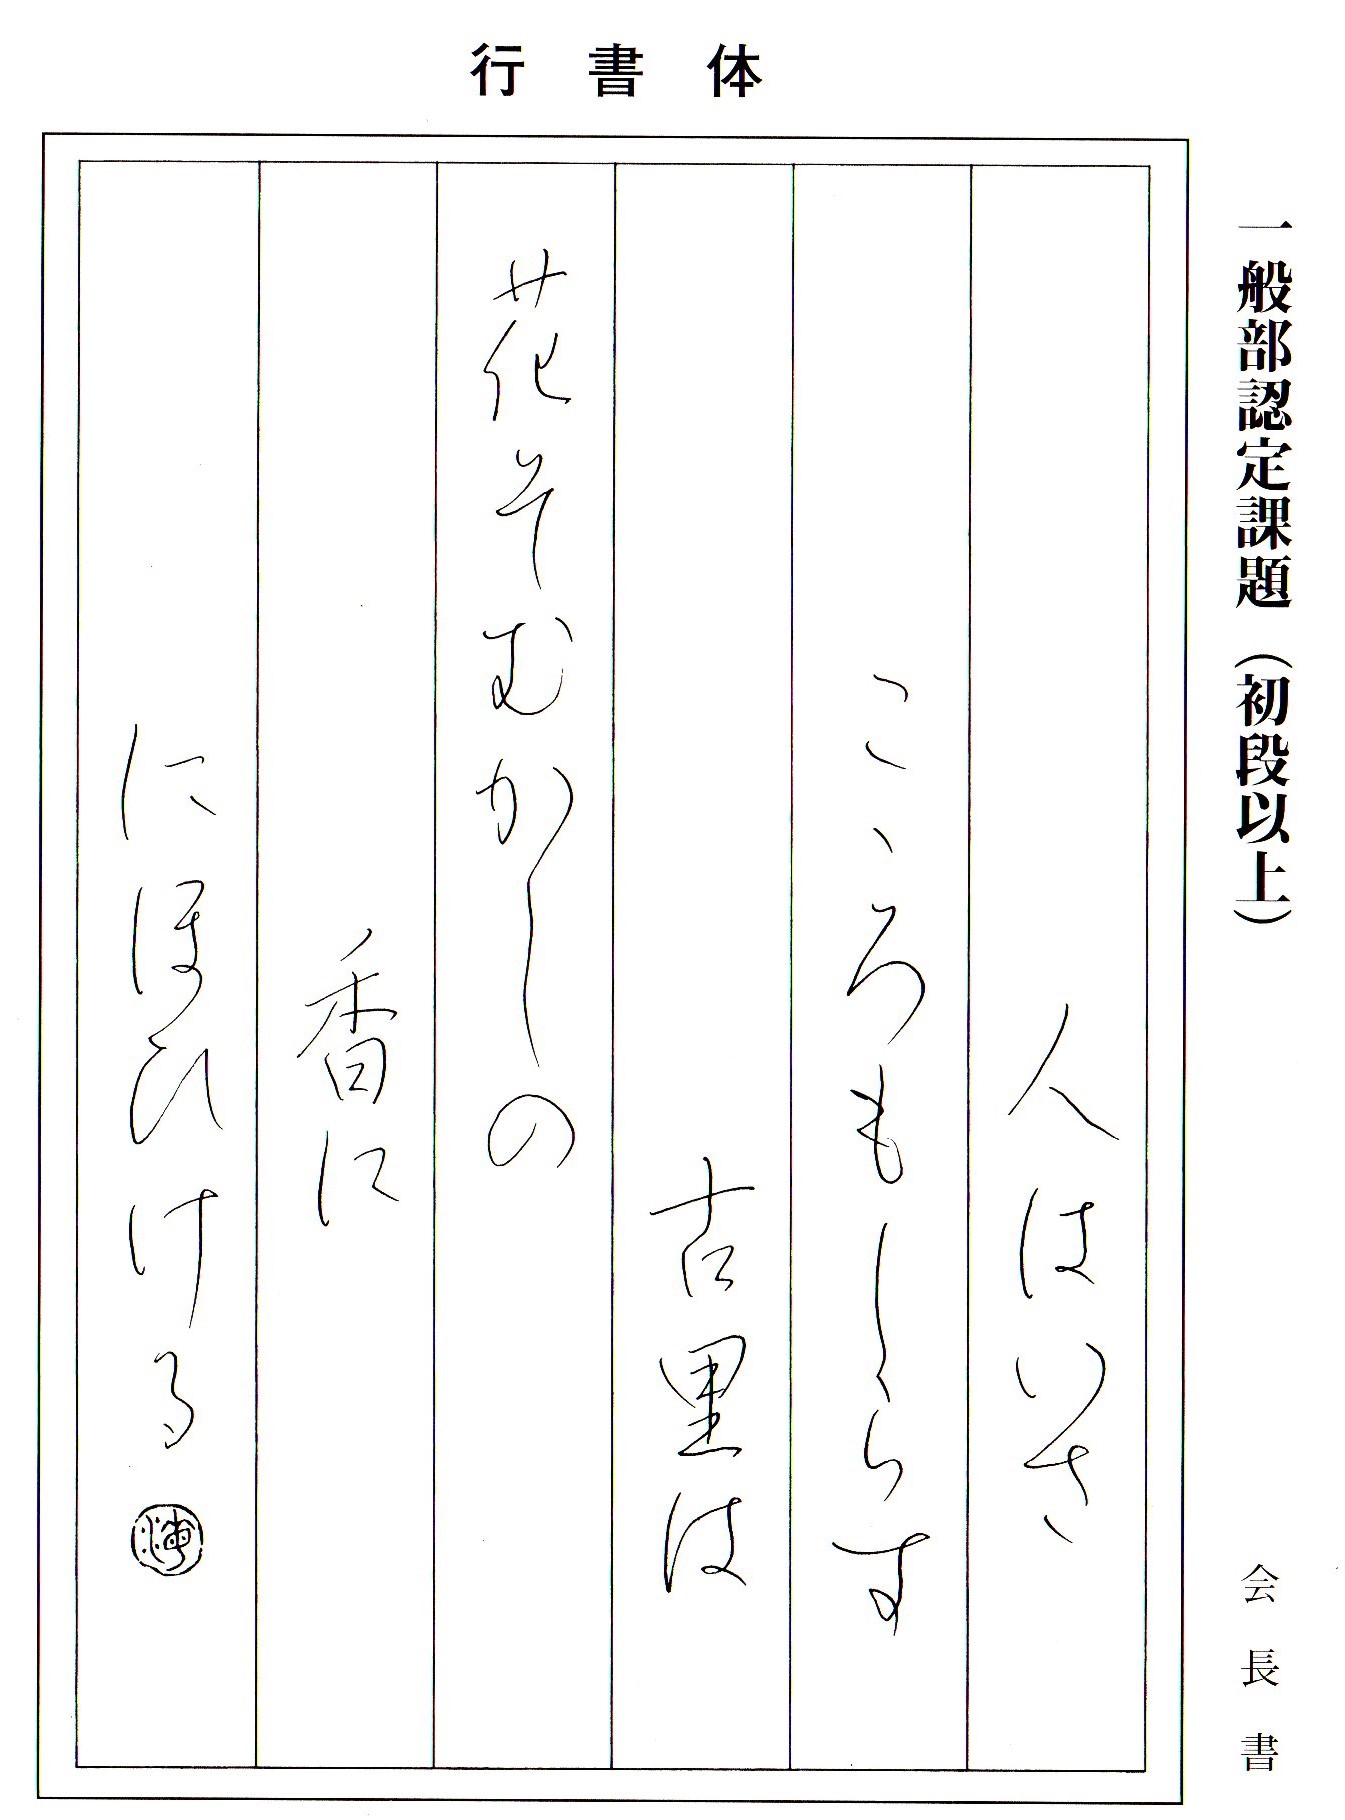 行書体
一般部認定課題（初段以上）
会長書
人はいさ
こゝろもしらす
古里は
花そむかしの
香に
にほひける